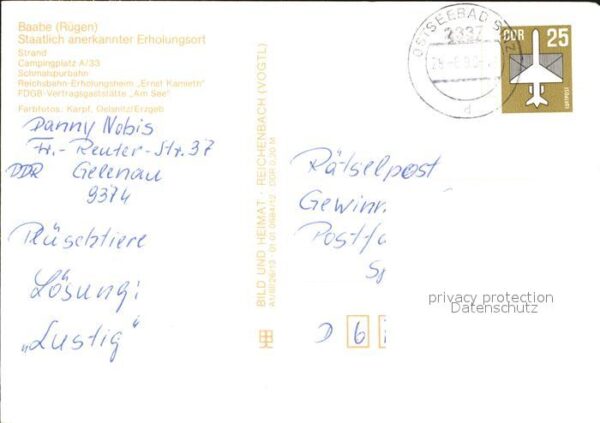 Baabe (Rügen)
Staatlich anerkannter Erholungsort
Strand
Campingplatz A/33
Schmalspurbahn
Reichsbahn-Erholungsheim „Ernst Kamieth“
FDGB-Vertragsgaststätte „Am See“
Farbfotos: Karpf, Oelsnitz/Erzgeb
Danny Nobis
Fr.-Reuter-Str. 37
DDR Gelenau
9374
Plüschtiere
Lösung:
„Lustig“
BILD UND HEIMAT · REICHENBACH (VOGTL)
A1/III/26/13 · 01 01 0684/12 · DDR 0,20 M
OSTSEEBAD
2337
d
DDR 25
LUFTPOST
Rätselpost
Gewinn
Postfa
Sp
D 6
privacy protection
Datenschutz